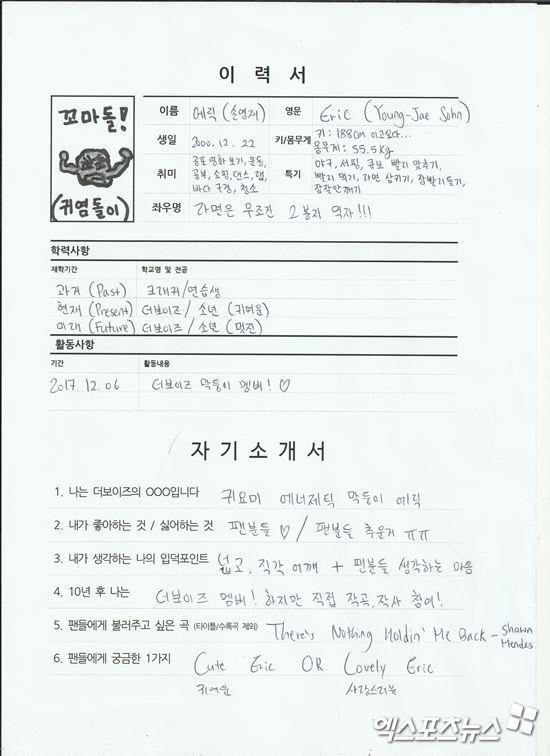 이 력 서
꼬마돌!
(귀염돌이)
이름 에릭 (손영재) 영문 Eric (Young-Jae Sohn)
생일 2000. 12. 22 키/몸무게 키 : 188cm 이고싶다...
몸무게 : 55.5kg
취미 공포 영화 보기, 운동, 공부, 쇼핑, 댄스, 랩, 바다 구경, 청소
특기 야구, 서핑, 큐브 빨리 맞추기, 빨리 먹기, 라면 삼키기, 잠 빨리 들기, 잠 잘 안깨기
좌우명 라면은 무조건 2봉지 먹자!!!
학력사항
재학기간 학교명 및 전공
과거 (Past) 크래커/연습생
현재 (Present) 더보이즈 / 소년 (귀여운)
미래 (Future) 더보이즈 / 소년 (멋진)
활동사항
기간 활동내용
2017. 12. 06 더보이즈 막둥이 멤버! ♡
자 기 소 개 서
1. 나는 더보이즈의 OOO입니다 귀요미 에너제틱 막둥이 에릭
2. 내가 좋아하는 것 / 싫어하는 것 팬분들 ♡ / 팬분들 추운거 ㅠㅠ
3. 내가 생각하는 나의 입덕포인트 넓고, 직각 어깨 + 팬분들 생각하는 마음
4. 10년 후 나는 더보이즈 멤버! 하지만 직접 작곡, 작사 참여!
5. 팬들에게 불러주고 싶은 곡 (타이틀/수록곡 제외) There's Nothing Holdin' Me Back - Shawn Mendes
6. 팬들에게 궁금한 1가지 Cute Eric OR Lovely Eric
귀여운 사랑스러운
엑스포츠뉴스